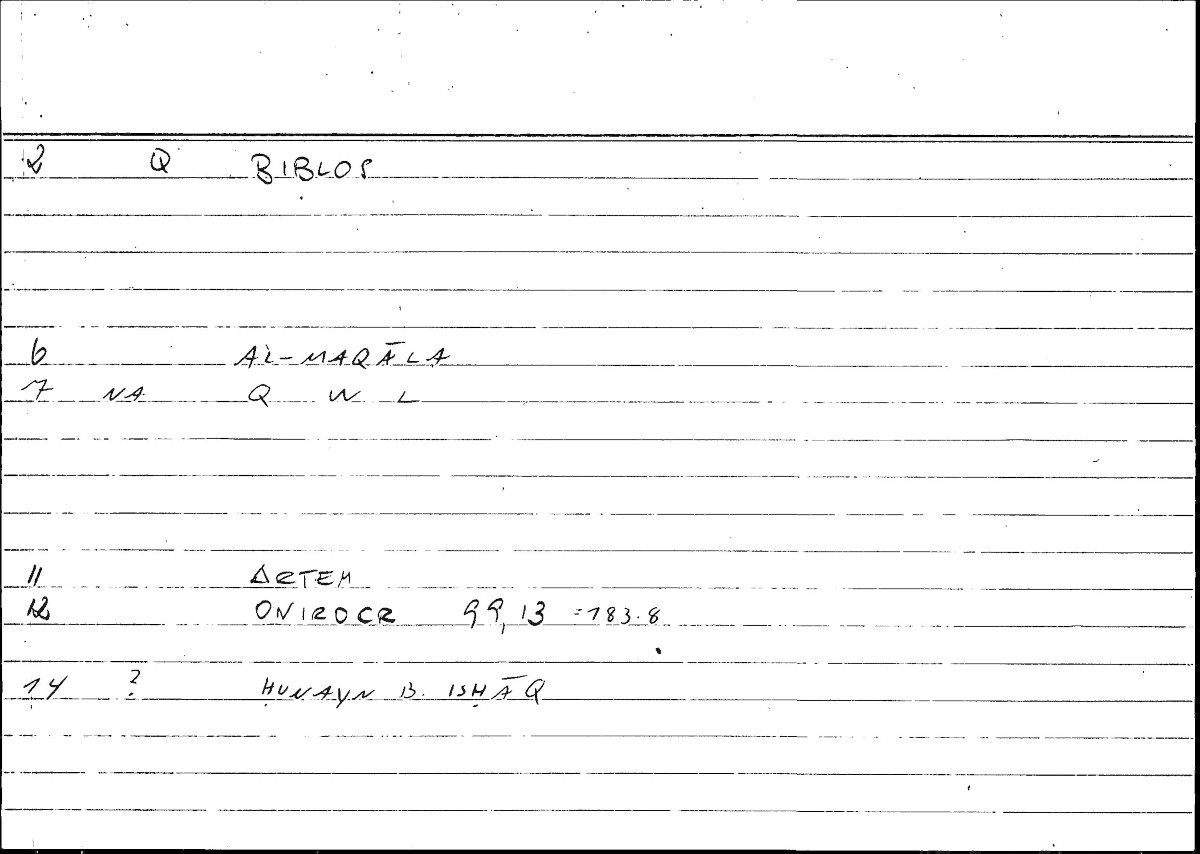 2 Q BIBLOS
6 AL-MAQĀLA
7 NA Q W L
11 ARTEM
12 ONIROCR 99,13 =183.8
14 ? ḤUNAYN B. ISḤĀQ